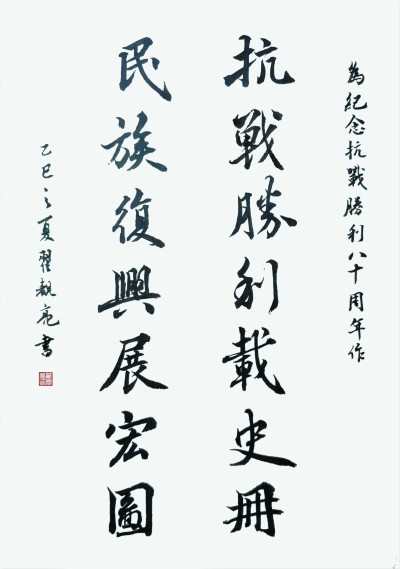 為紀念抗戰勝利八十周年作
抗戰勝利載史冊
民族復興展宏圖
乙巳之夏翟亮書